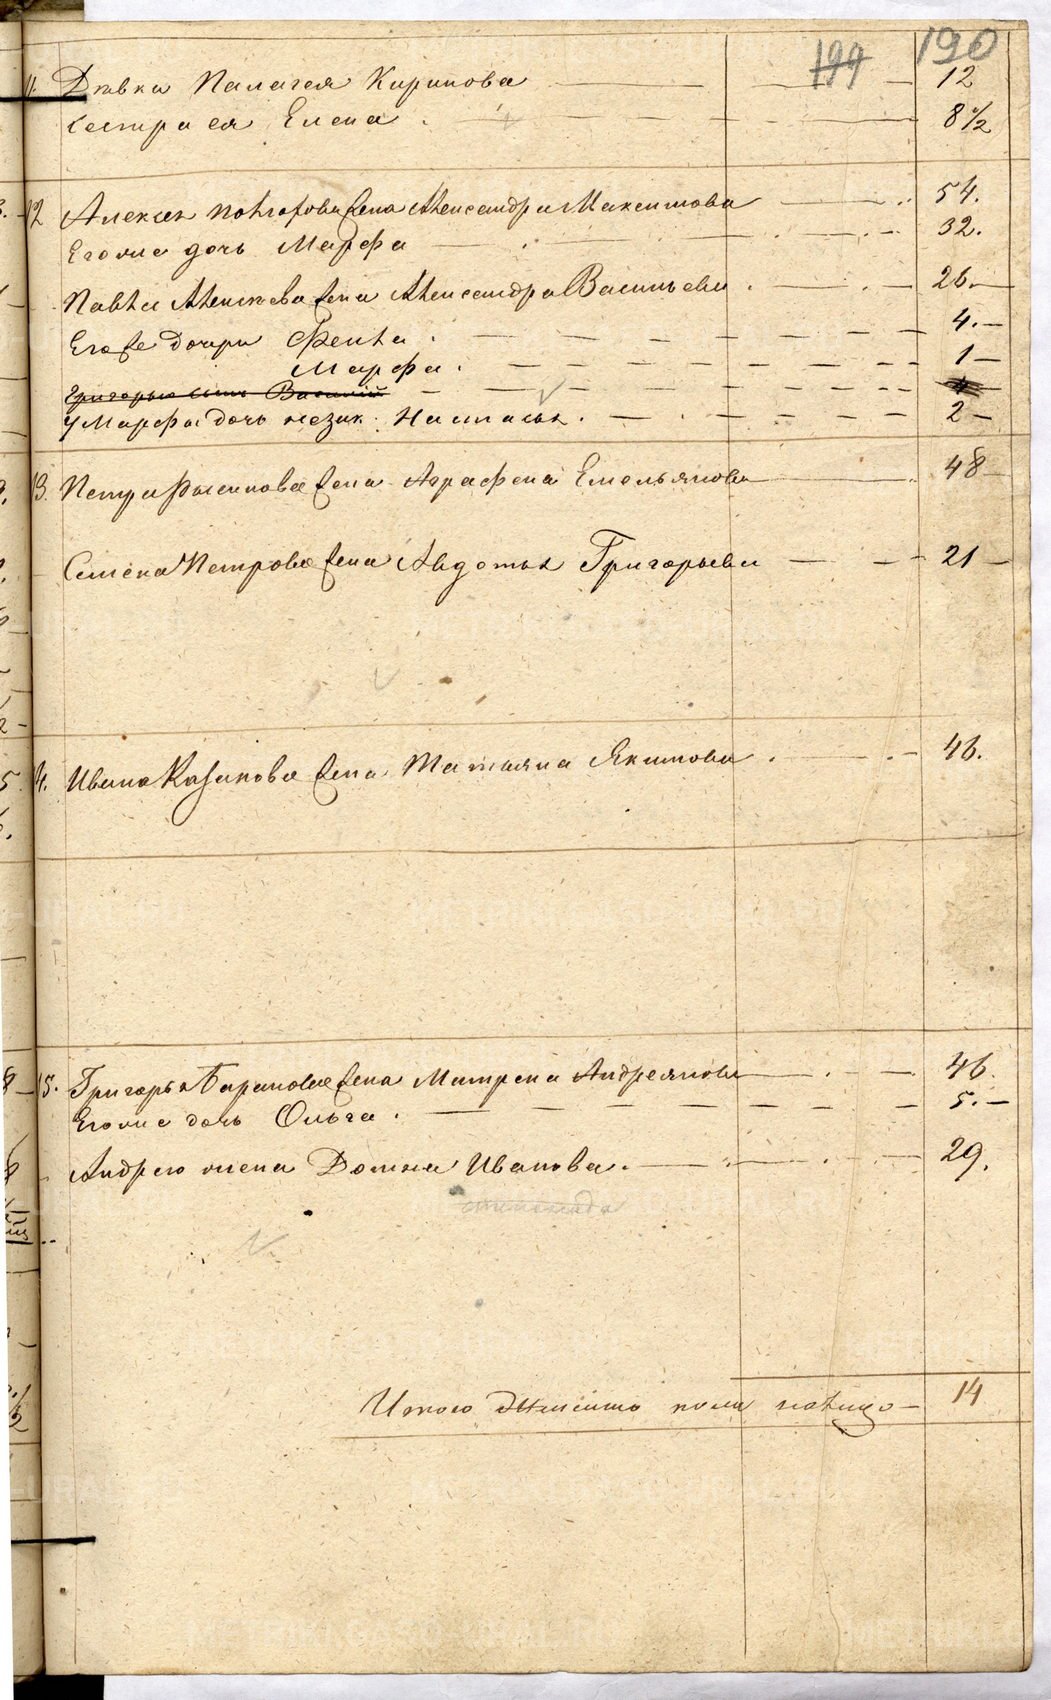 199 190
11. Девка Палагея Кирилова 12
Сестра ея Елена 8 1/2
12 Алексея жена Александра Максимова 54.
Его же дочь Марфа 32.
Павла Алексеева жена Александра Васильева 26.
Его же дочери Фекла 4.
Марфа 1
Григорью сынъ Василий
У Марфы дочь незак. Настасья 2
13. Петра жена Аграфена Емельянова 48
Семена Петрова жена Авдотья Григорьева 21
14. Ивана Казакова жена Татьяна Якимова 46.
15. Григорья Баранова жена Матрена Андреянова 46.
Его же дочь Ольга 5.
Андрею жена Домна Иванова 29.
Итого женска пола налицо 14